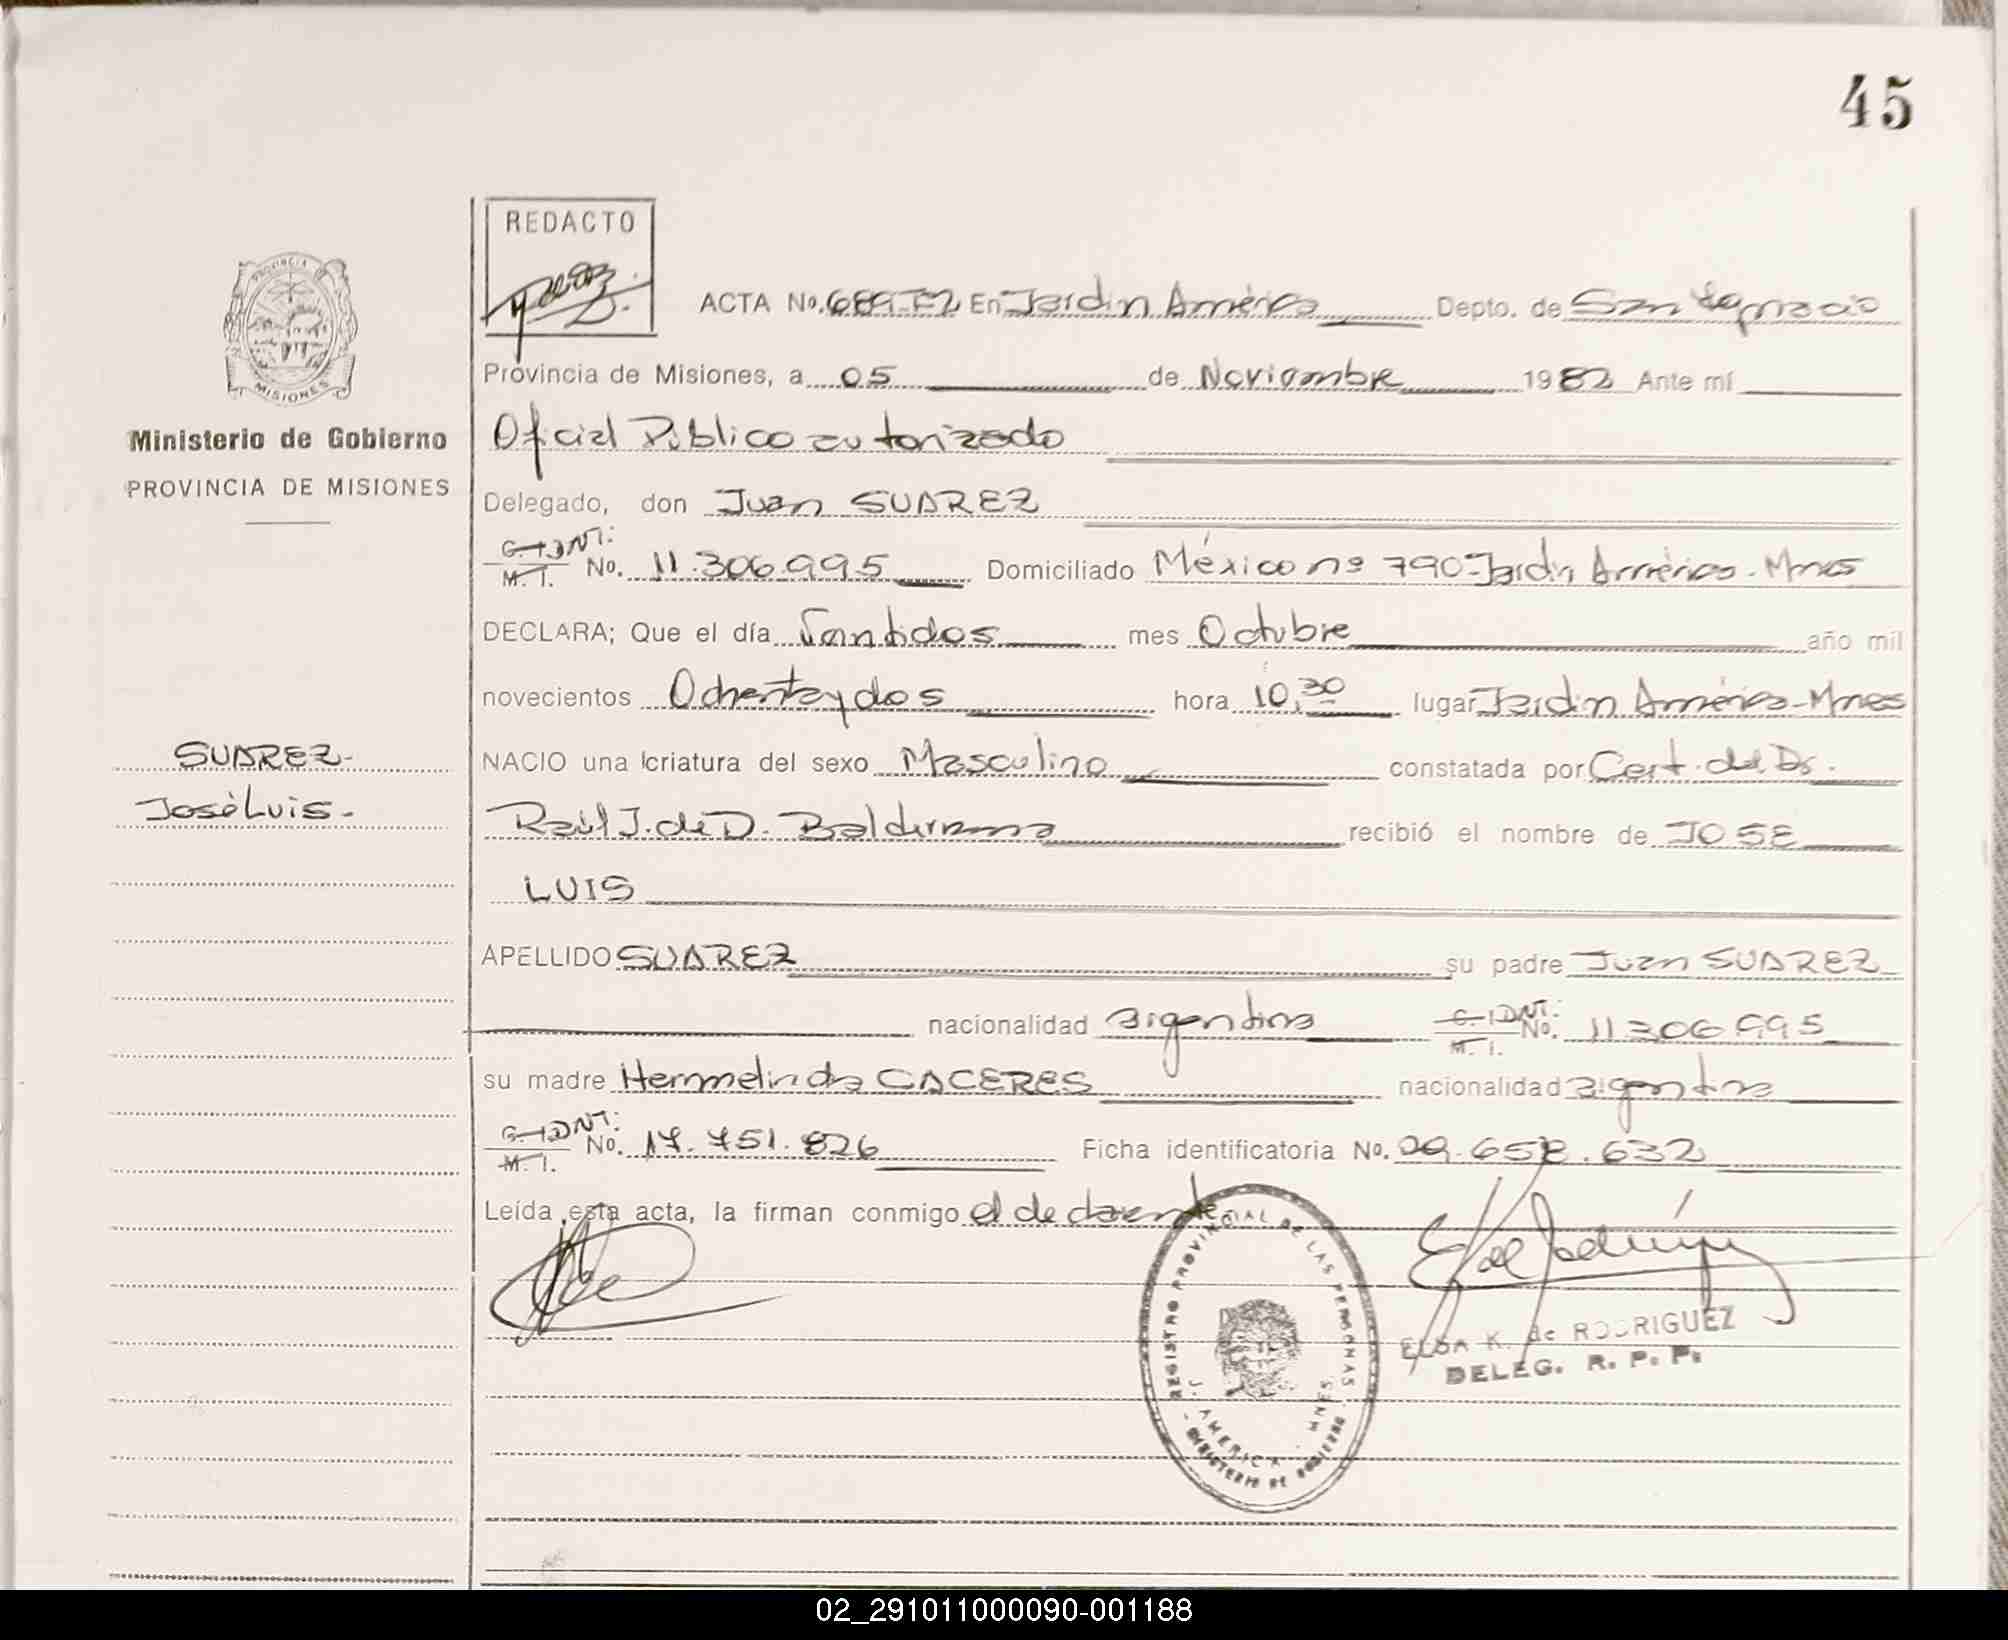 45
REDACTO
ACTA No. 689-T2 En Jardin América Depto. de San Ignacio
PROVINCIA
MISIONES
Provincia de Misiones, a 05 de Noviembre 1982 Ante mí
Ministerio de Gobierno
Oficial Público autorizado
PROVINCIA DE MISIONES
Delegado, don Juan SUAREZ
C. I. DNI: M. I. No. 11.306.995 Domiciliado México nº 790-Jardin América-Mnes
DECLARA; Que el día Veintidos mes Octubre año mil
novecientos Ochenta y dos hora 10,30 lugar Jardin América-Mnes
SUAREZ-
NACIO una criatura del sexo Masculino constatada por Cert. del Dr.
José Luis-
Raúl J. de D. Balderrama recibió el nombre de JOSE
LUIS
APELLIDO SUAREZ su padre Juan SUAREZ
nacionalidad argentina C. I. DNI: M. I. No. 11306995
su madre Hermelinda CACERES nacionalidad argentina
C. I. DNI: M. I. No. 17.751.826 Ficha identificatoria No. 29.658.632
Leída esta acta, la firman conmigo el declarante
REGISTRO PROVINCIAL DE LAS PERSONAS
J. AMERICA - MNES
MINISTERIO DE GOBIERNO
ELSA K. de RODRIGUEZ
DELEG. R. P. P.
02_291011000090-001188